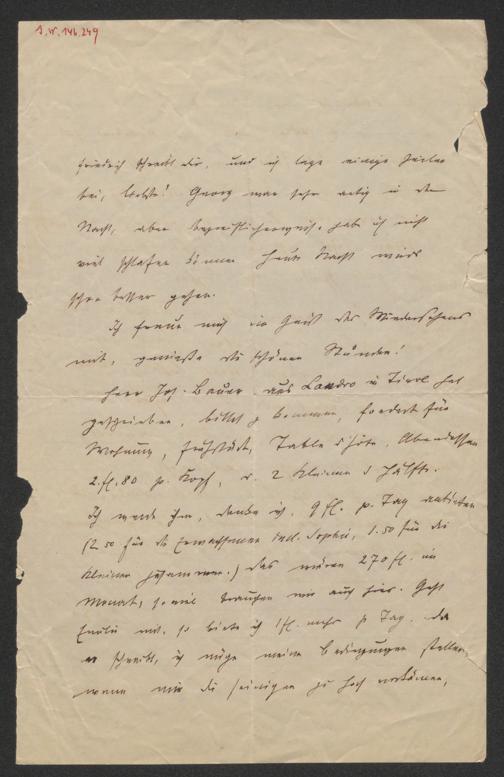 I.N. 146.249
Friedrich schreibt dir, und ich lege einige Zeilen
bei, Liebste! Georg war sehr artig in der
Nacht, aber begreiflicherweise habe ich nicht
viel schlafen können. Heute Nacht wird's
schon besser gehen.
Ich freue mich im Geist des Wiedersehens
mit, geniesse die schönen Stunden!
Herr Jos. Bauer aus Landro in Tirol hat
geschrieben, bittet z. kommen, fordert für
Wohnung, Frühstück, Table d'hôte, Abendessen
2 fl. 80 p. Kopf, v. 2 Kleinen d. Hälfte.
Ich werde ihm, denke ich, 9 fl. p. Tag anbieten
(2.50 für die Erwachsenen incl. Sophie, 1.50 für die
Kleinen zusammen.) Das wären 270 fl. im
Monat, so viel brauchen wir auch hier. Geht
Emilie mit, so biete ich 1 fl. mehr p Tag. Da
er schreibt, ich möge meine Bedingungen stellen,
wenn mir die seinigen zu hoch vorkämen,